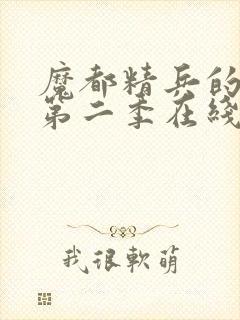 魔都精兵的
第二季在线
我很软萌